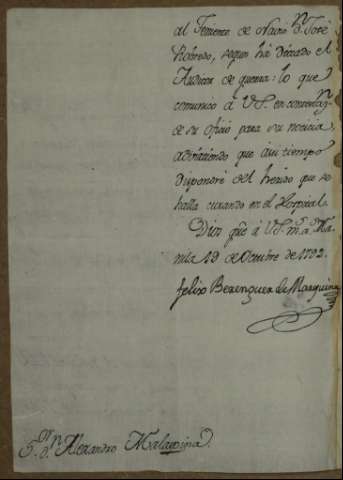 al Teniente de Navio Dn. José
Robredo, segun ha dictado el
Auditor de guerra: lo que
comunico á V.S. en contextn.
de su oficio para su noticia,
advirtiendo que á su tiempo
dispondré del herido que se
halla curando en el Hospital.
Dios gûe á V.S. m.s a.s Ma-
nila 19 de Octubre de 1792.
Felix Berenguer de Marquina
S.or Dn. Alexandro Malaspina.